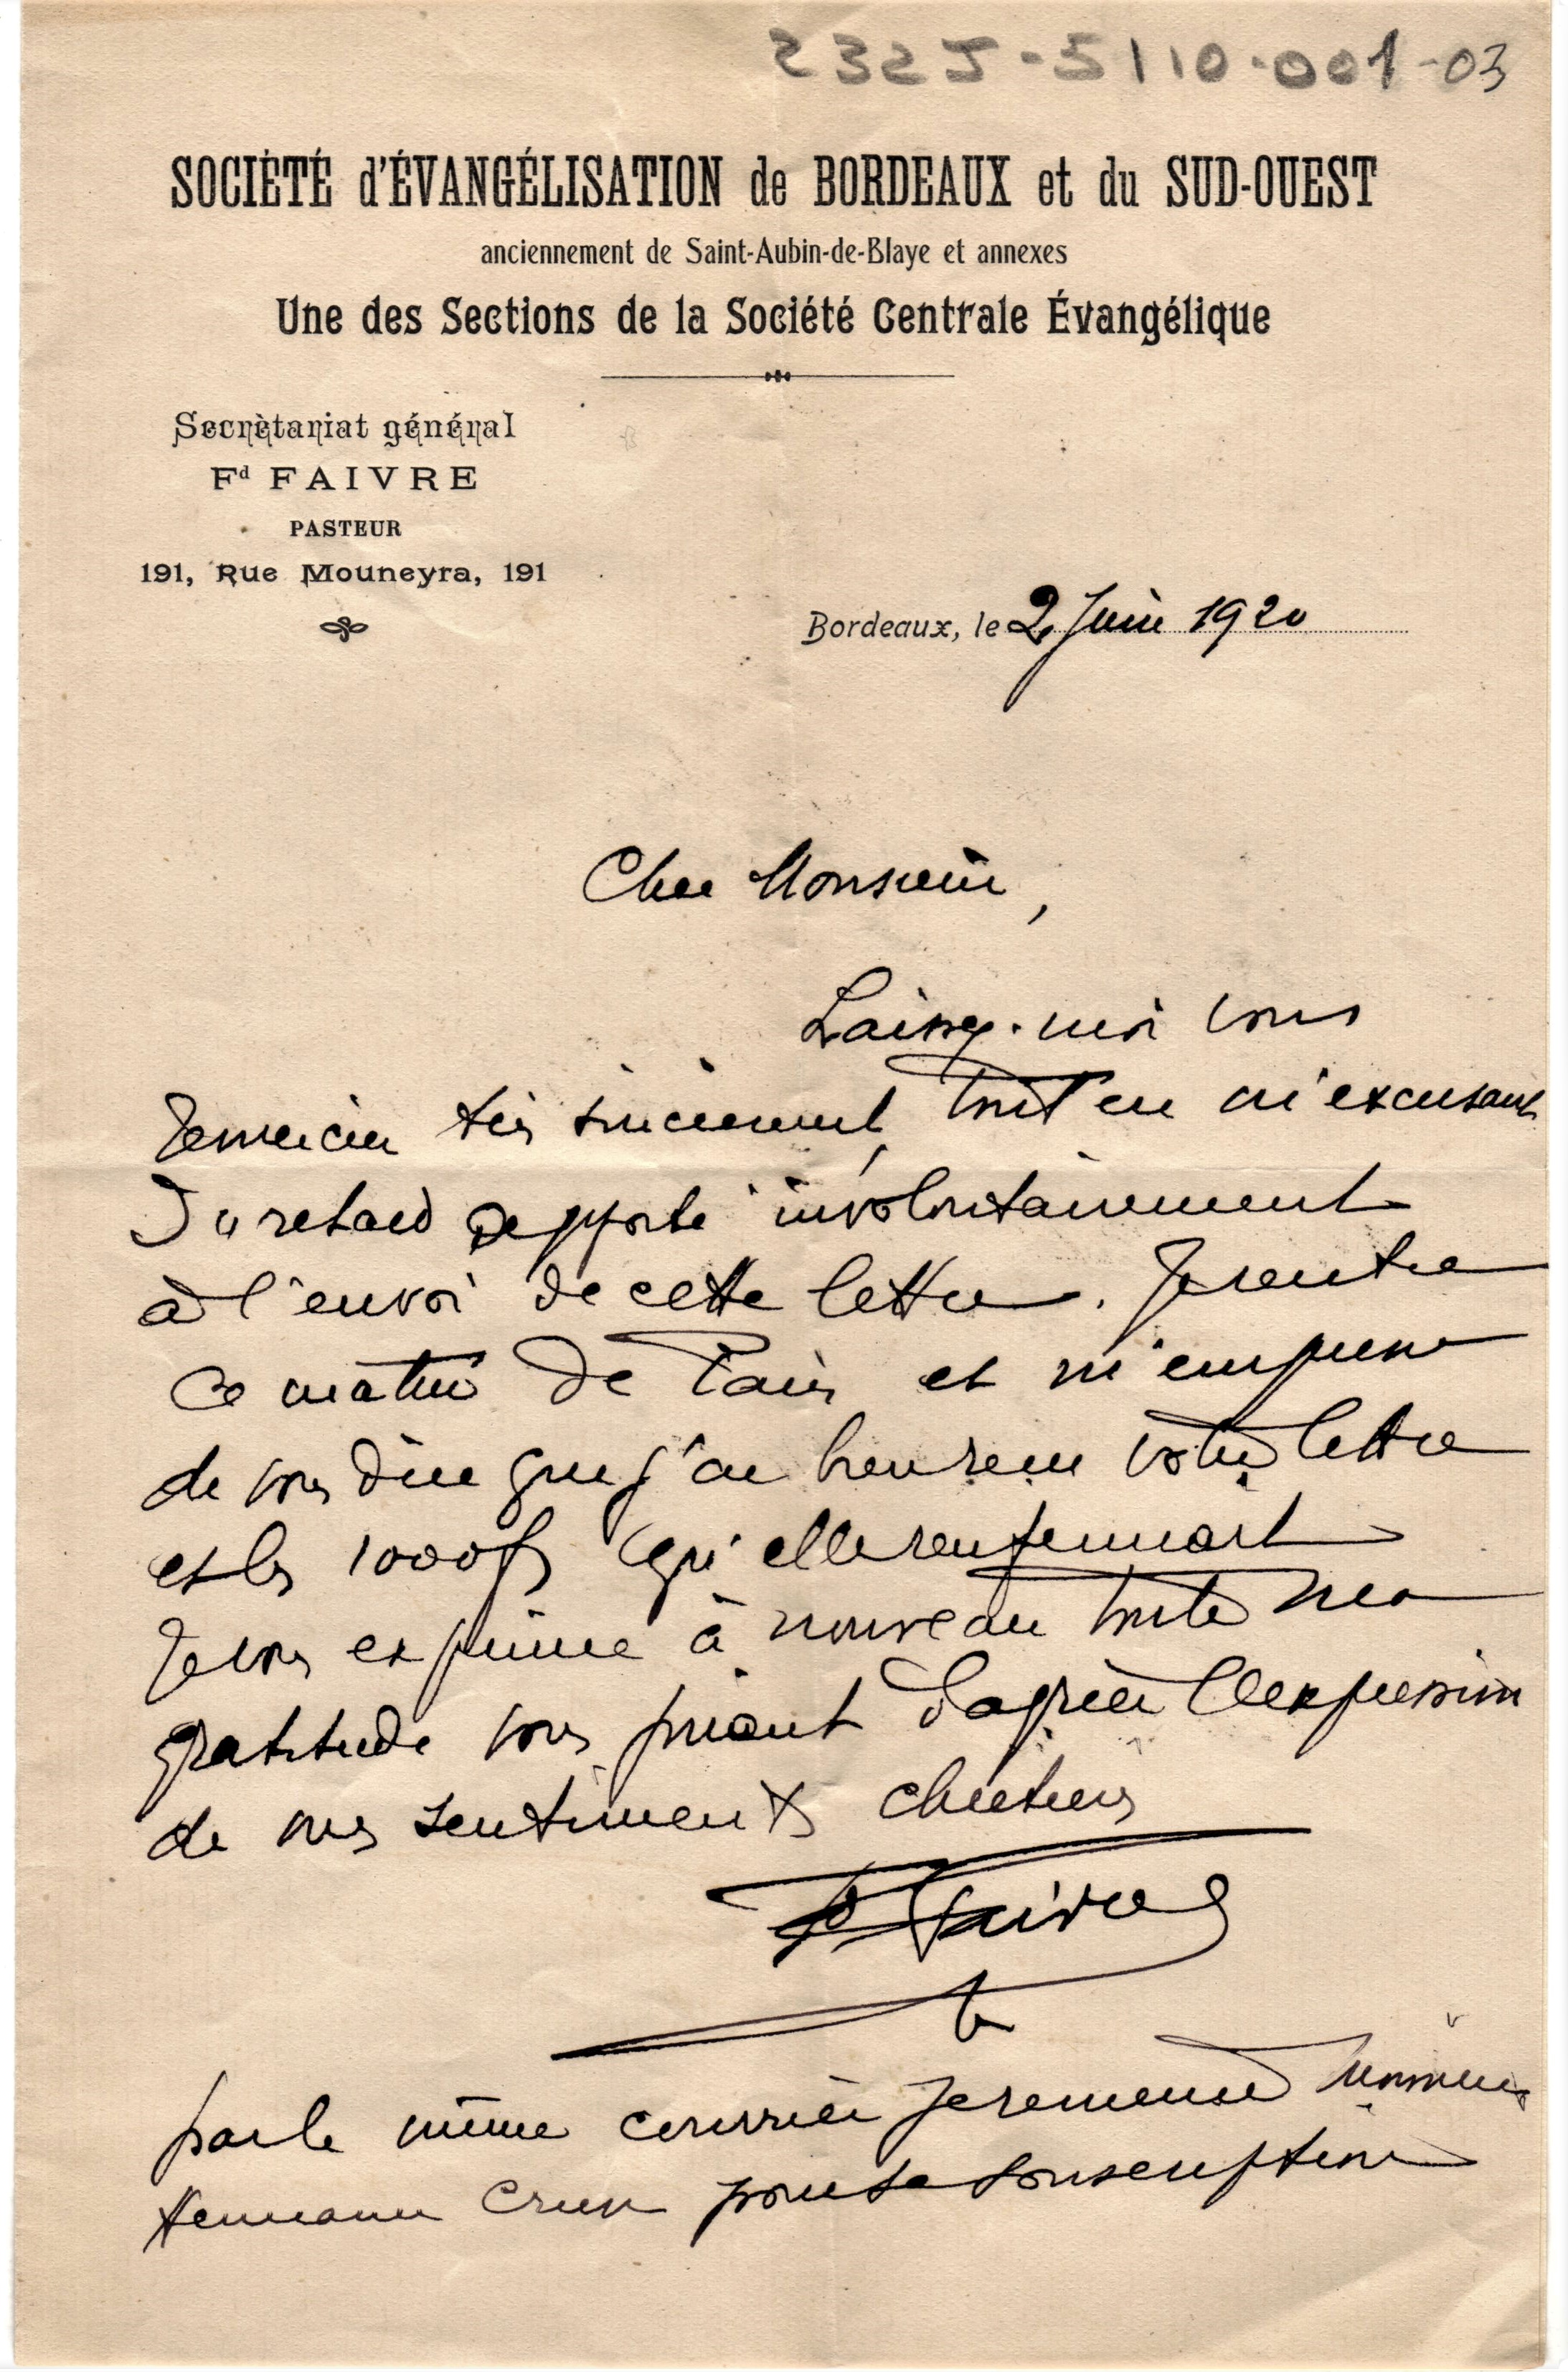 232J-5110-001-03
SOCIÉTÉ d'ÉVANGÉLISATION de BORDEAUX et du SUD-OUEST
anciennement de Saint-Aubin-de-Blaye et annexes
Une des Sections de la Société Centrale Évangélique
Secrètariat général
Fd FAIVRE
PASTEUR
191, Rue Mouneyra, 191
Bordeaux, le 2 Juin 1920
Cher Monsieur,
Laissez-moi vous
remercier très sincèrement, tout en m'excusant
du retard apporté involontairement
à l'envoi de cette lettre. Je rentre
ce matin de Paris et m'empresse
de vous dire que j'ai bien reçu votre lettre
et les 1000 f qu'elle renfermait
Je vous exprime à nouveau toute ma
gratitude vous priant d'agréer l'expression
de mes sentiments chrétiens
Fd Faivre
par le même courrier je remercie Monsieur
Hermann Cruse pour sa souscription